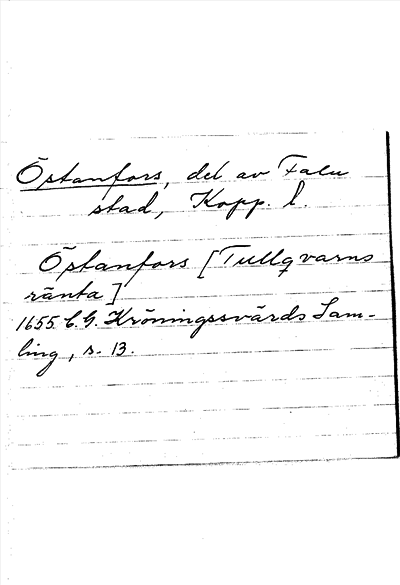 Östanfors, del av Falu
stad, Kopp. l.
Östanfors [Tullqvarns
ränta]
1655. C. G. Kröningssvärds Sam-
ling, s. 13.